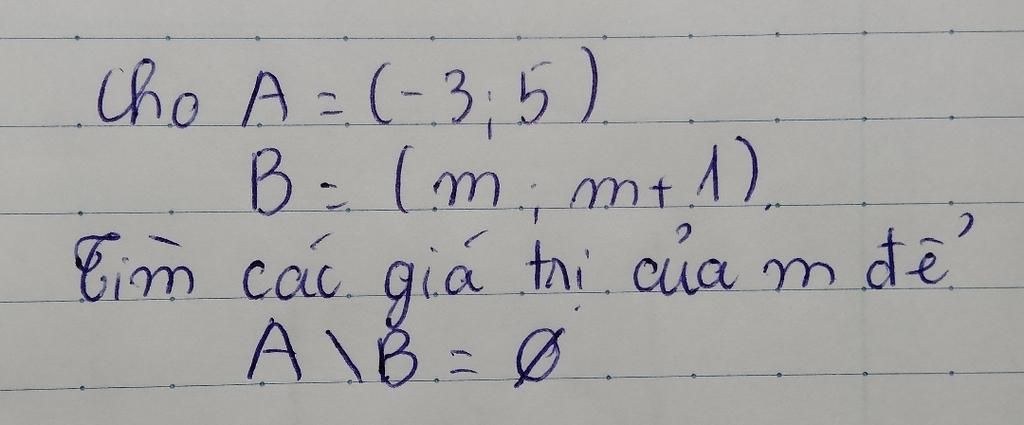 Cho A = (-3; 5)
B = (m; m+1).
Tìm các giá trị của m để
A \ B = ∅